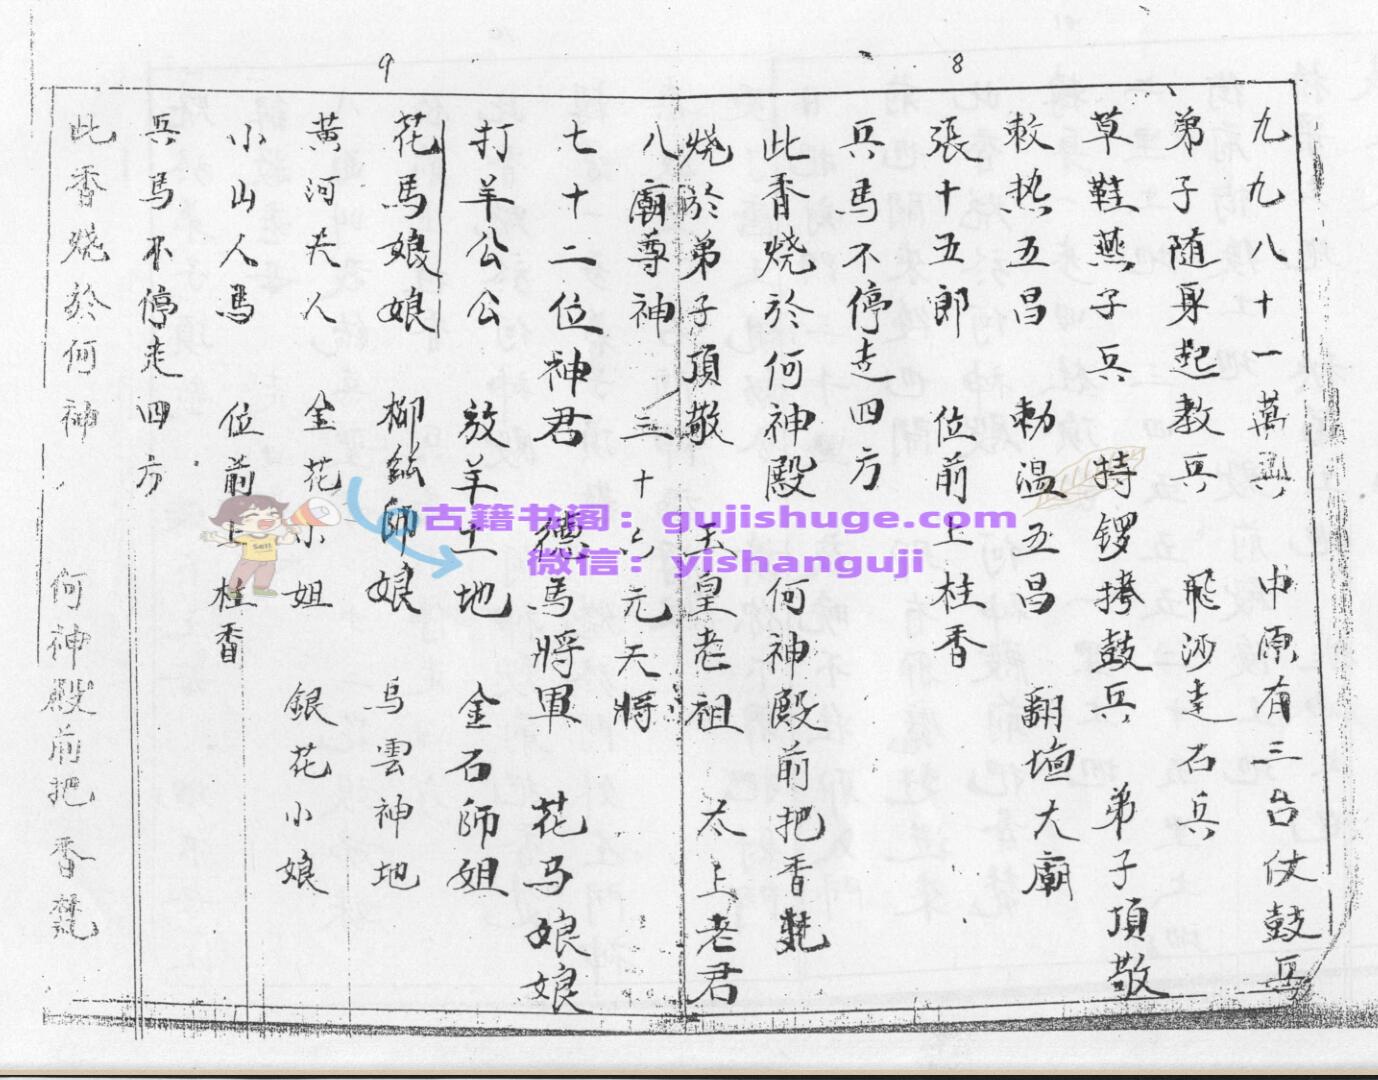 8
九九八十一萬兵 中原有三台仗鼓兵
弟子随身起教兵 飛沙走石兵
草鞋燕子兵 持锣拷鼓兵 弟子頂敬
敕热五昌 勅温五昌 翻壇大廟
張十五郎 位前上柱香
兵馬不停走四方
此香燒於何神殿 何神殿前把香
燒於弟子頂敬 玉皇老祖 太上老君
9
八廟尊神 三十六元天將
七十二位神君 德馬將軍 花马娘娘
打羊公公 放羊土地 金石師姐
花馬娘娘 柳 師娘 烏雲神地
黃河夫人 金花小姐 銀花小娘
小山人馬 位前上柱香
兵馬不停走四方
此香燒於何神 何神殿前把香
古籍书阁：gujishuge.com
微信：yishanguji